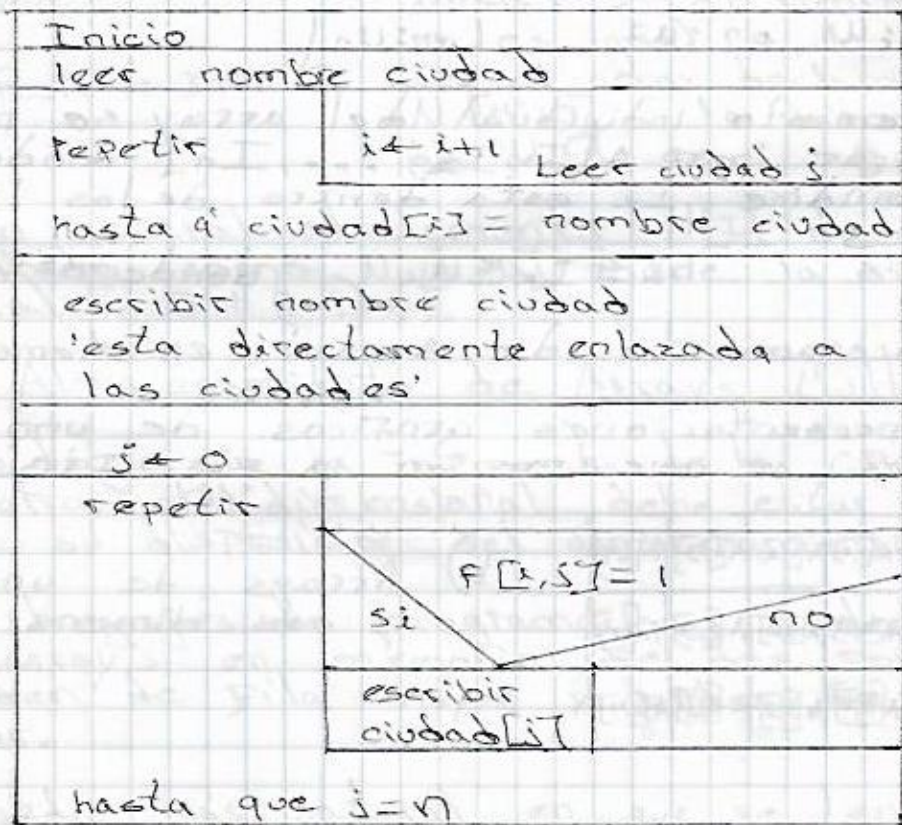 Inicio
leer nombre ciudad
repetir
i ← i+1
Leer ciudad j
hasta q' ciudad[i] = nombre ciudad
escribir nombre ciudad
'esta directamente enlazada a
las ciudades'
j ← 0
repetir
f [i,j] = 1
si
no
escribir
ciudad[j]
hasta que j=n